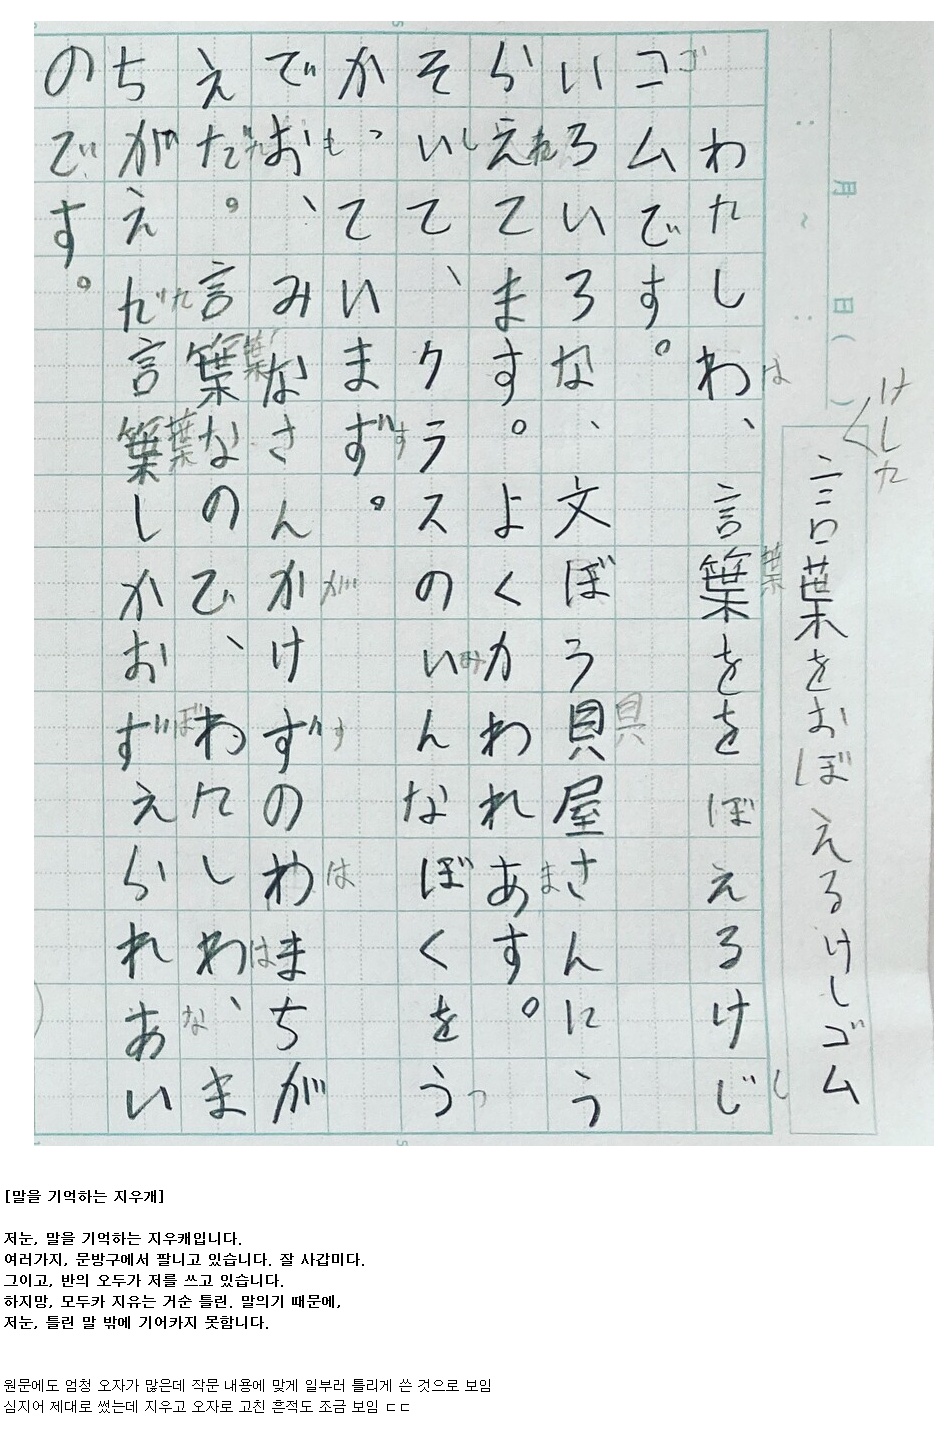 月 日( )
けした
言葉をおぼえるけしゴム
わたしわ、言葉ををぼえるけじ
は 葉 し
コムです。
ゴ
いろいろな、文ぼう貝屋さんにう
具
らえてます。よくかわれあす。
れ ま
そいて、クラスのいんなぼくをう
し み っ
かていまず。
っ す
でお、みなさんかけずのわまちが
も が す は
えだ。言葉なので、わたしわ、ま
た 葉 は
ちがえだ言葉しかおずえられあい
た 葉 ぼ な
のです。
[말을 기억하는 지우개]
저눈, 말을 기억하는 지우캐입니다.
여러가지, 문방구에서 팔니고 있습니다. 잘 사갑미다.
그이고, 반의 오두가 저를 쓰고 있습니다.
하지망, 모두카 지유는 거순 틀린. 말의기 때문에,
저눈, 틀린 말 밖에 기어카지 못함니다.
원문에도 엄청 오자가 많은데 작문 내용에 맞게 일부러 틀리게 쓴 것으로 보임
심지어 제대로 썼는데 지우고 오자로 고친 흔적도 조금 보임 ㄷㄷ